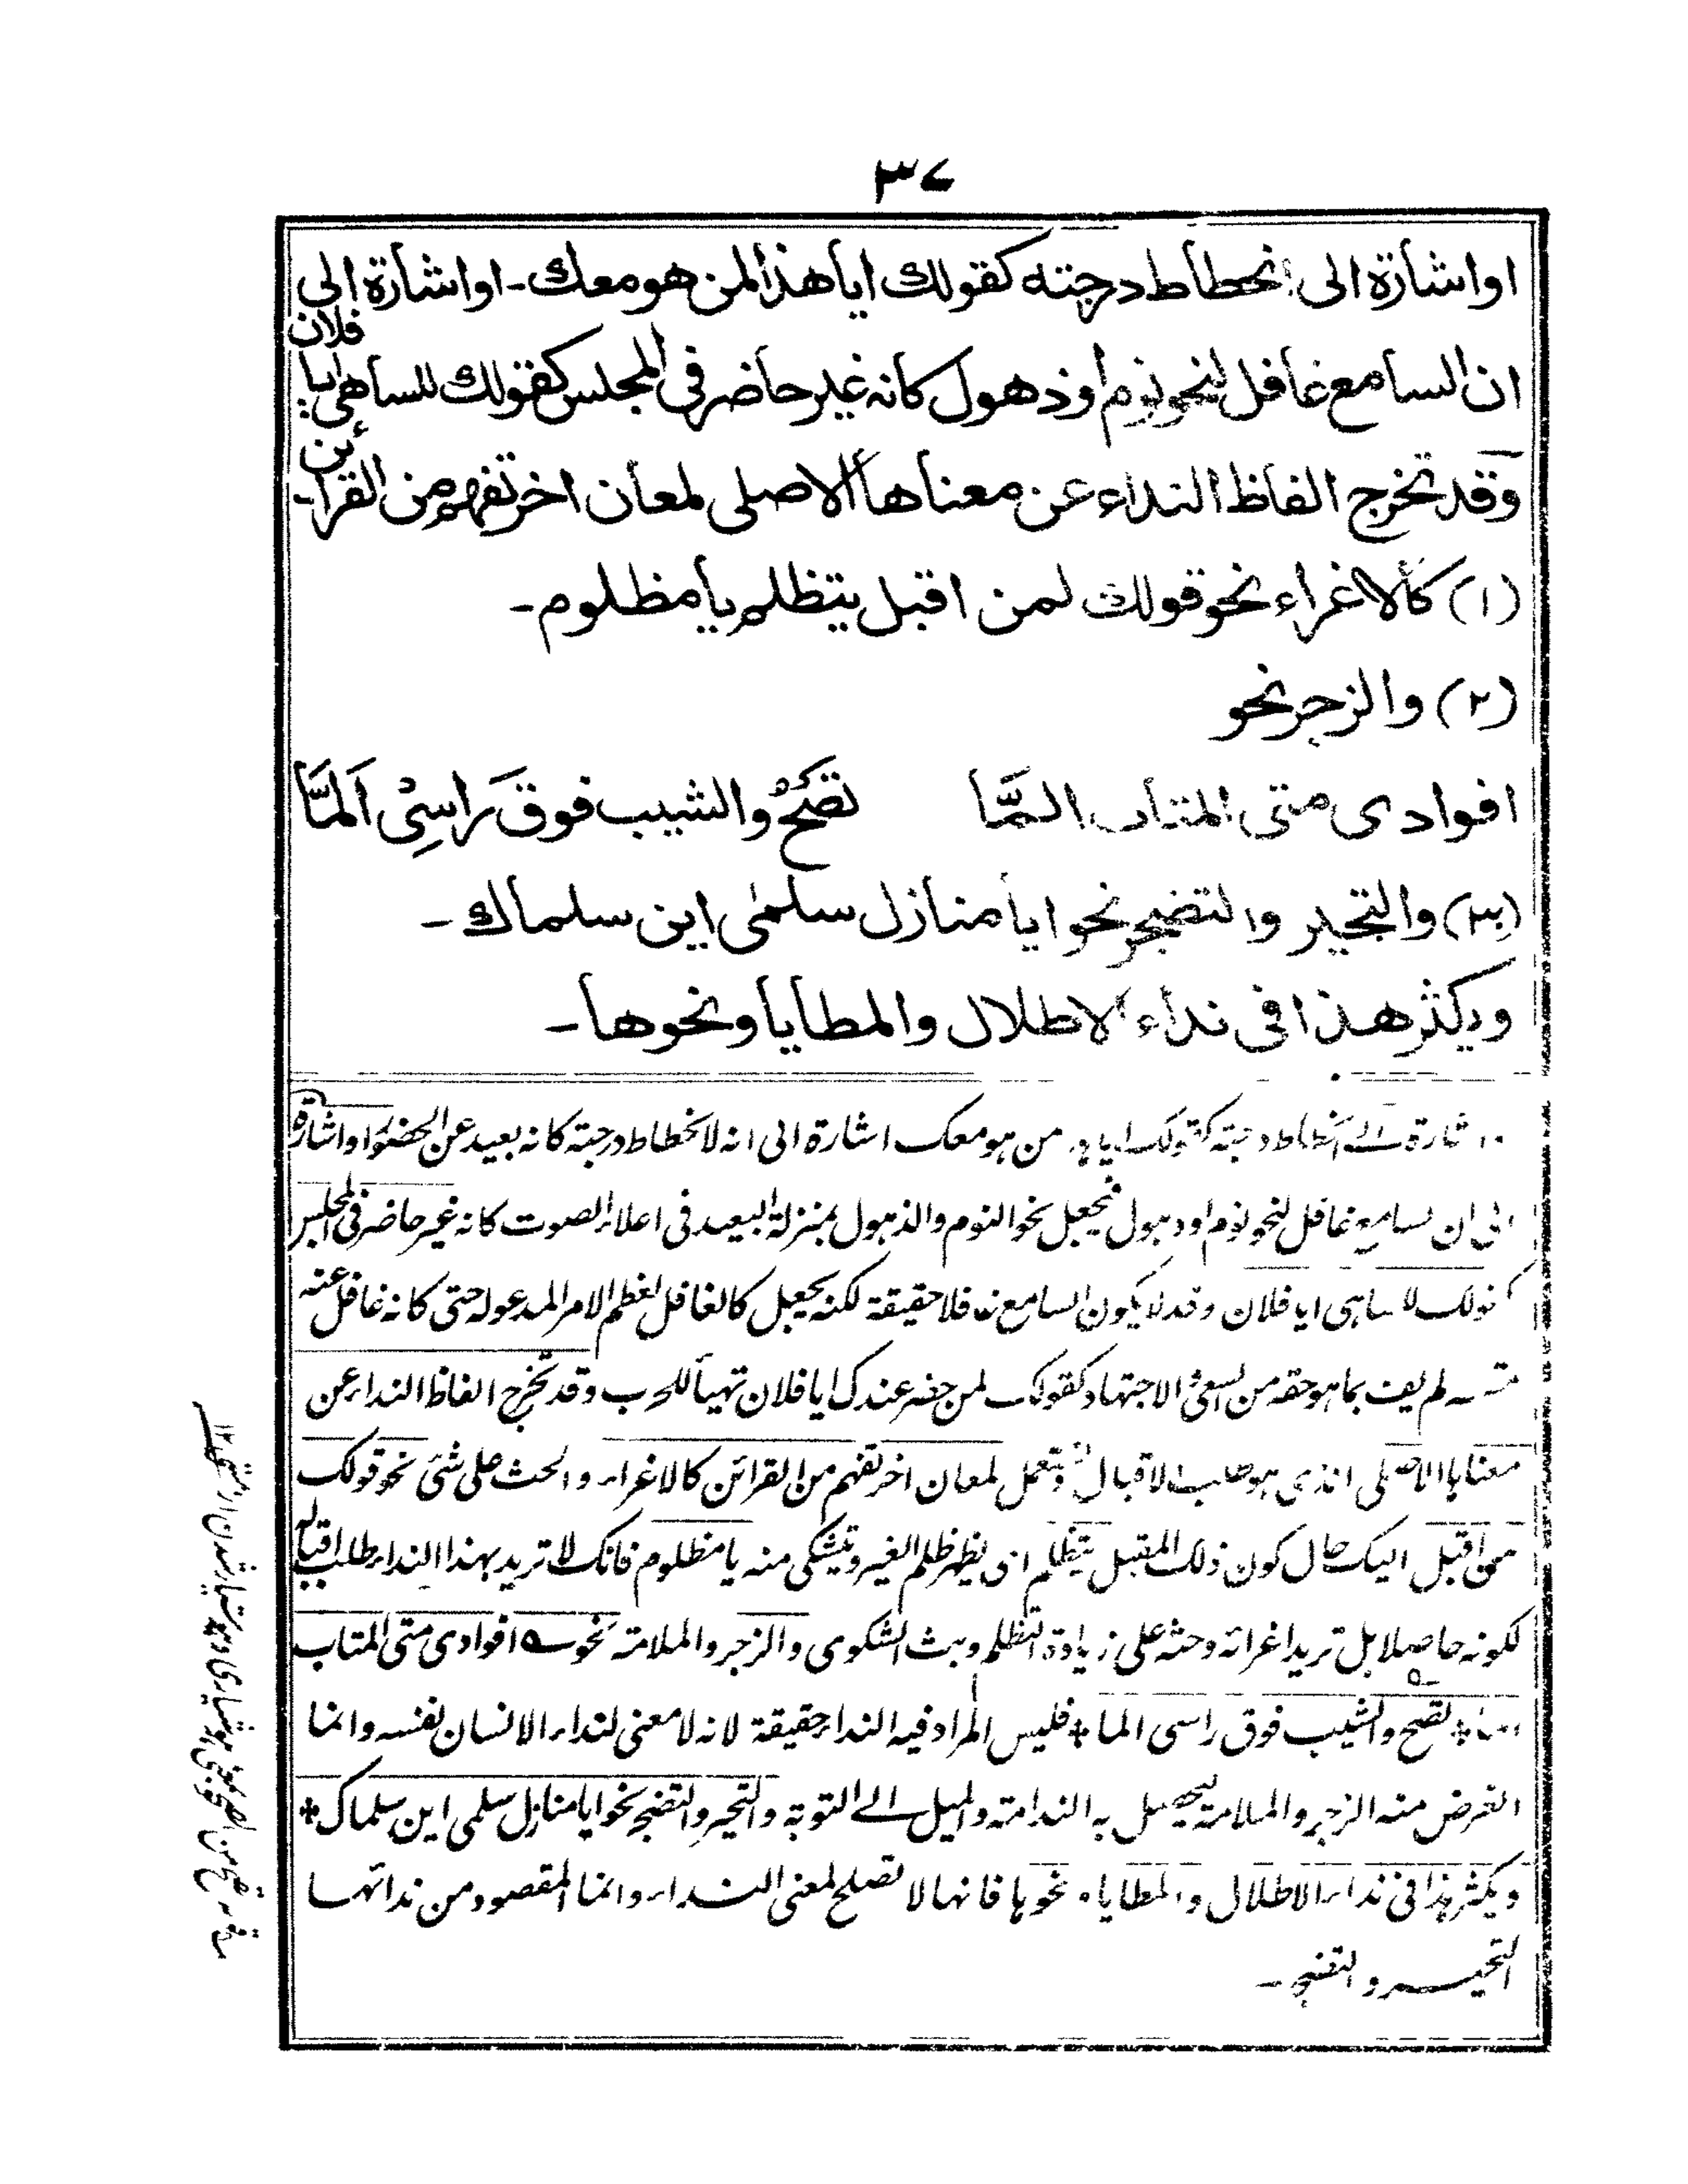 ٣٧
او اشارة الى انحطاط درجته كقولك ايا هذا لمن هو معك ـ او اشارة الى
ان السامع غافل لنحو نوم او ذهول كانه غير حاضر فى المجلس كقولك للساهى ايا فلان
وقد تخرج الفاظ النداء عن معناها الاصلى لمعان اخر تفهم من القرائن
(١) كالاغراء نحو قولك لمن اقبل يتظلم يا مظلوم ـ
(٢) والزجر نحو
افوادى متى المتاب المّا تصحُ والشيب فوقَ راسِىْ اَلمَّا
(٣) والتحير والتضجر نحو ايا منازل سلمٰى اين سلماك ـ
ويكثر هذا فى نداء الاطلال والمطايا ونحوها ـ
اشارة الے انحطاط درجته كقولك ايا من هو معك اشارة الى انه لانحطاط درجته كانه بعيد عن الحضور او اشارة
الى ان السامع غافل لنحو نوم او ذهول فيجعل نحو النوم والذهول بمنزلة البعيد فى اعلاء الصوت كانه غير حاضر فى المجلس
كقولك للساهى ايا فلان وقد لا يكون السامع غافلا حقيقة لكنه يجعل كالغافل لعظم الامر المدعو له حتى كانه غافل عنه
لم يف بما هو حقه من السعى والاجتهاد كقولك لمن حضر عندك ايا فلان تهيأ للحرب وقد تخرج الفاظ النداء عن
معناها الاصلى الذى هو طلب الاقبال وتستعمل لمعان اخر تفهم من القرائن كالاغراء والحث على شئ نحو قولك
لمن اقبل اليك حال كون ذلك المقبل يتظلم اى يظهر ظلم الغير ويتشكى منه يا مظلوم فانك لا تريد بهذا النداء طلب اقباله
لكونه حاصلا بل تريد اغرائه وحثه على زيادة التظلم وبث الشكوى والزجر والملامة نحو ؎ افوادى متى المتاب
المّا * تصح والشيب فوق راسى الما * فليس المراد فيه النداء حقيقة لانه لا معنى لنداء الانسان نفسه وانما
الغرض منه الزجر والملامة ليحصل به الندامة والميل الے التوبة والتحير والتضجر نحو ايا منازل سلمى اين سلماك *
ويكثر هذا فى نداء الاطلال والمطايا ونحوها فانها لا تصلح لمعنى النداء وانما المقصود من ندائها
التحير والتضجر ـ